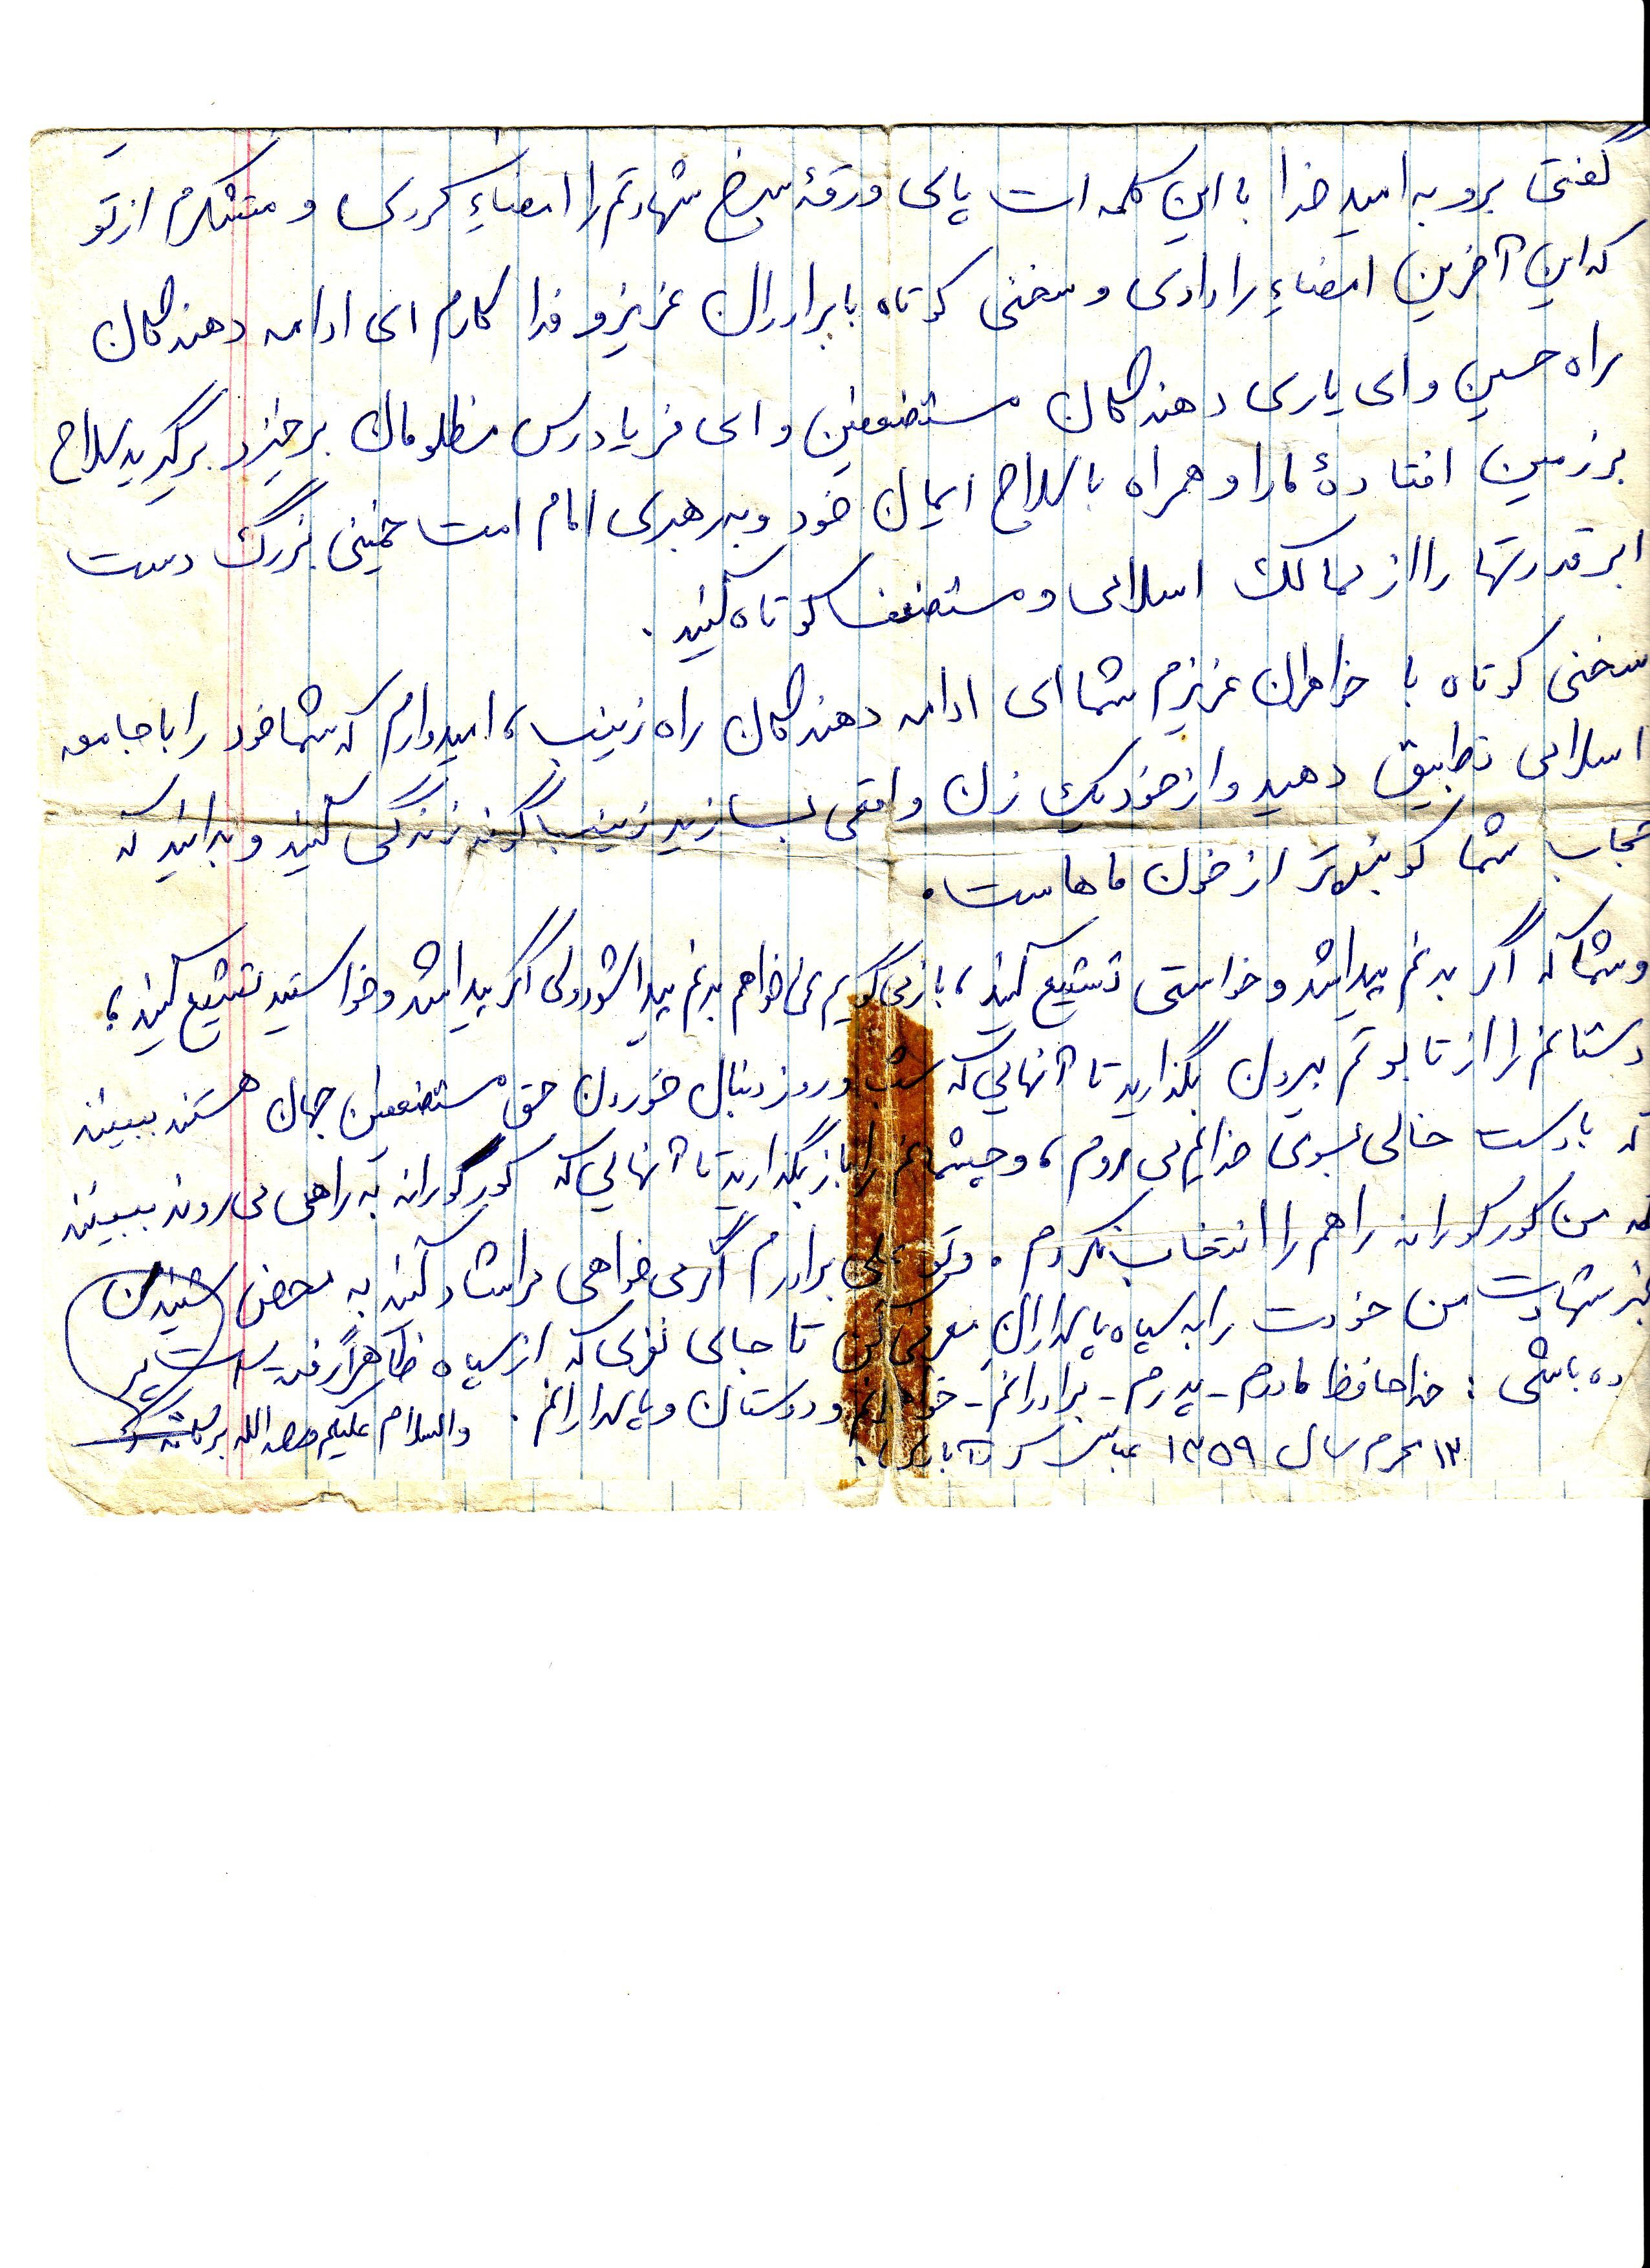 گفتی برو به امید خدا با این کلمه ات پای ورقهٔ سرخ شهادتم را امضاءِ کردی و متشکرم از تو
که این آخرین امضاءِ را دادی و سخنی کوتاه با برادران عزیز و فدا کارم ای ادامه دهندگان
راه حسین و ای یاری دهندگان مستضعفین و ای فریادرس مظلومان برخیزد برگیرید سلاح
بر زمین افتادهٔ ما را و همراه با سلاح ایمان خود و به رهبری امام امت خمینی بزرگ دست
ابر قدرتها را از ممالک اسلامی و مستضعف کوتاه کنید.
سخنی کوتاه با خواهران عزیزم شما ای ادامه دهندگان راه زینب، امیدوارم که شما خود را با جامعه
اسلامی تطبیق دهید و از خود یک زن واقعی بسازید زینب گونه زندگی کنید و بدانید که
حجاب شما کوبنده تر از خون ماهاست.
و شما که اگر بدنم پیدا شد و خواستی تشییع کنید، باز می گویم نمی خواهم بدنم پیدا شود ولی اگر پیدا شد و خواستید تشییع کنید،
دستانم را از تابوتم بیرون بگذارید تا آنهایی که شب و روز دنبال خوردن حق مستضعفین جهان هستند ببینند
که با دست خالی بسوی خدایم می روم، و چشمانم را باز بگذارید تا آنهایی که کورکورانه به راهی می روند ببینند
که من کورکورانه راهم را انتخاب نکردم. و تو علی برادرم اگر می خواهی مرا شاد کنی به محض شنیدن
خبر شهادت من خودت را به سپاه پاسداران معرفی کن تا جای نفری که از سپاه ظاهراً رفته است پر
کرده باشی: خداحافظ مادرم - پدرم - برادرانم - خواهرانم و دوستان و پاسدارانم. والسلام علیکم و رحمه الله برکاته
۱۳ محرم سال ۱۳۵۹ عباس